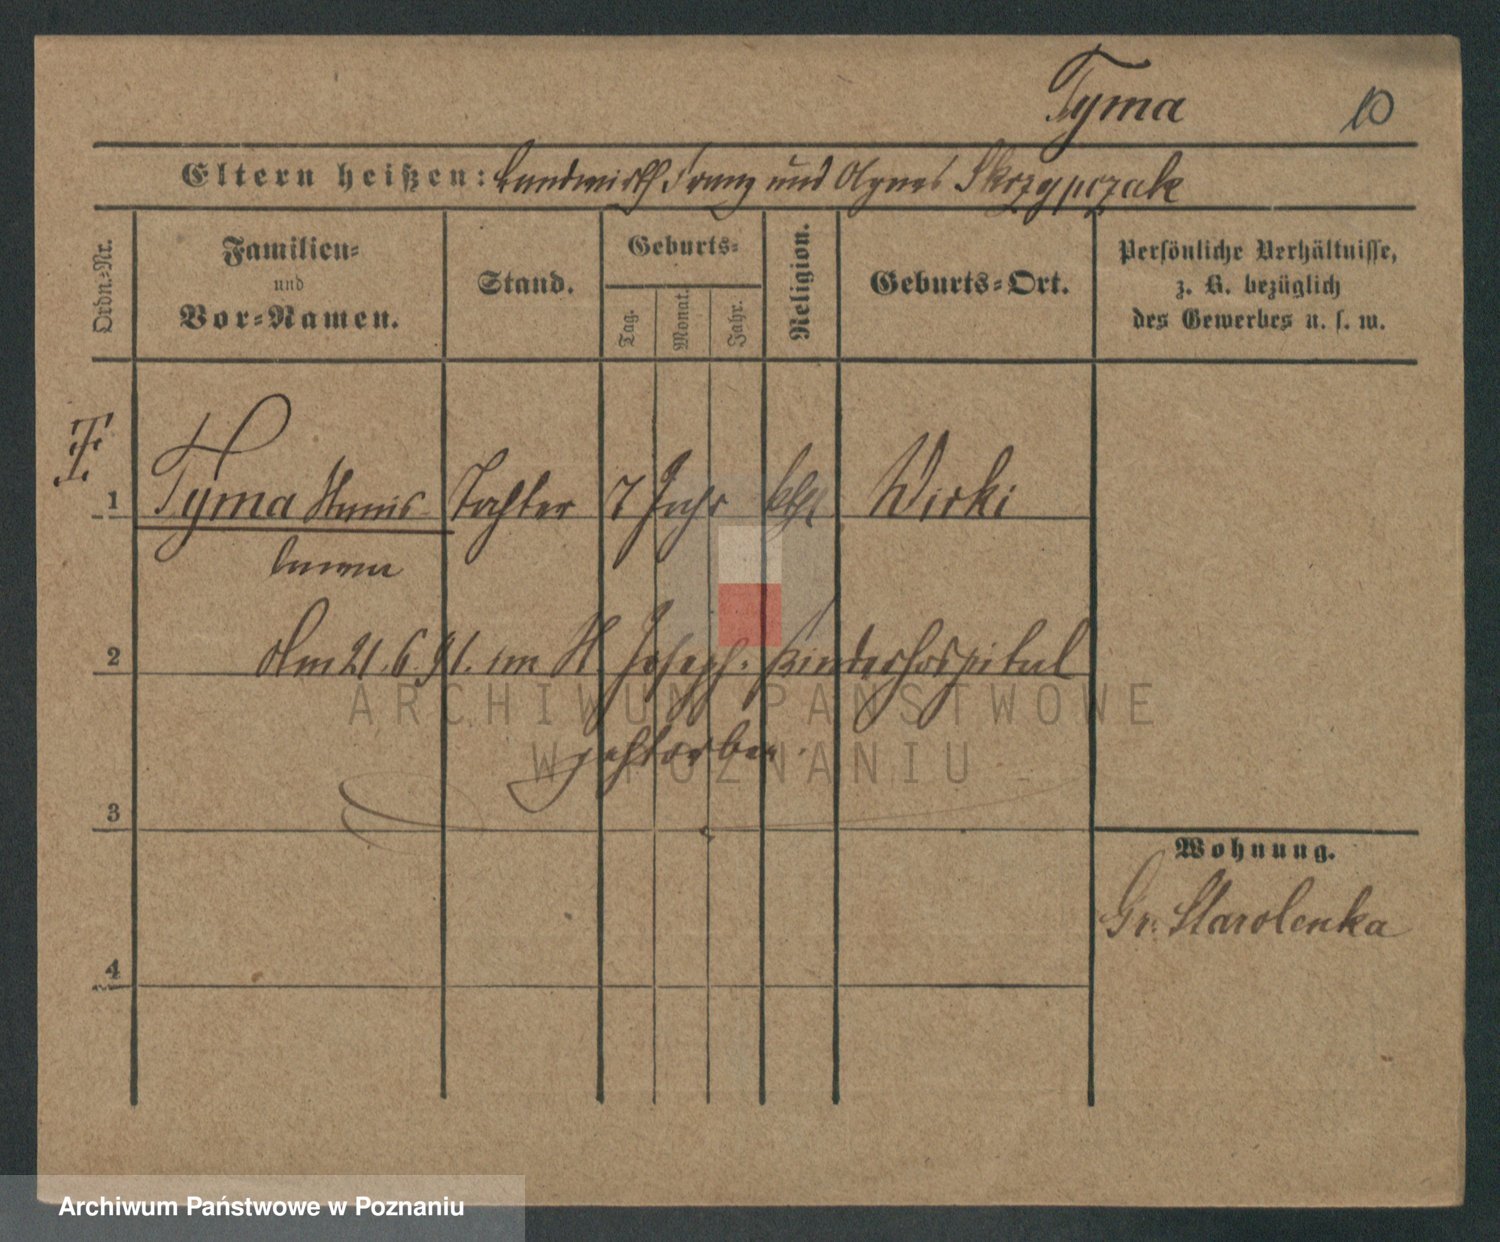 Tyma
10
Eltern heißen: Landwirth Franz und Agnes Skrzypczak
Ordn.=Nr.
Familien=
und
Vor=Namen.
Stand.
Geburts=
Tag.
Monat.
Jahr.
Religion.
Geburts=Ort.
Persönliche Verhältnisse,
z. B. bezüglich
des Gewerbes u. s. w.
1 Tyma Stanis- Tochter 7 Jahr kth Wirki
lawa
2 Am 21.6.91. im St. Joseph. Kinderhospital
gestorben.
3
4
Wohnung.
Gr. Starolenka
ARCHIWUM PAŃSTWOWE
W POZNANIU
Archiwum Państwowe w Poznaniu